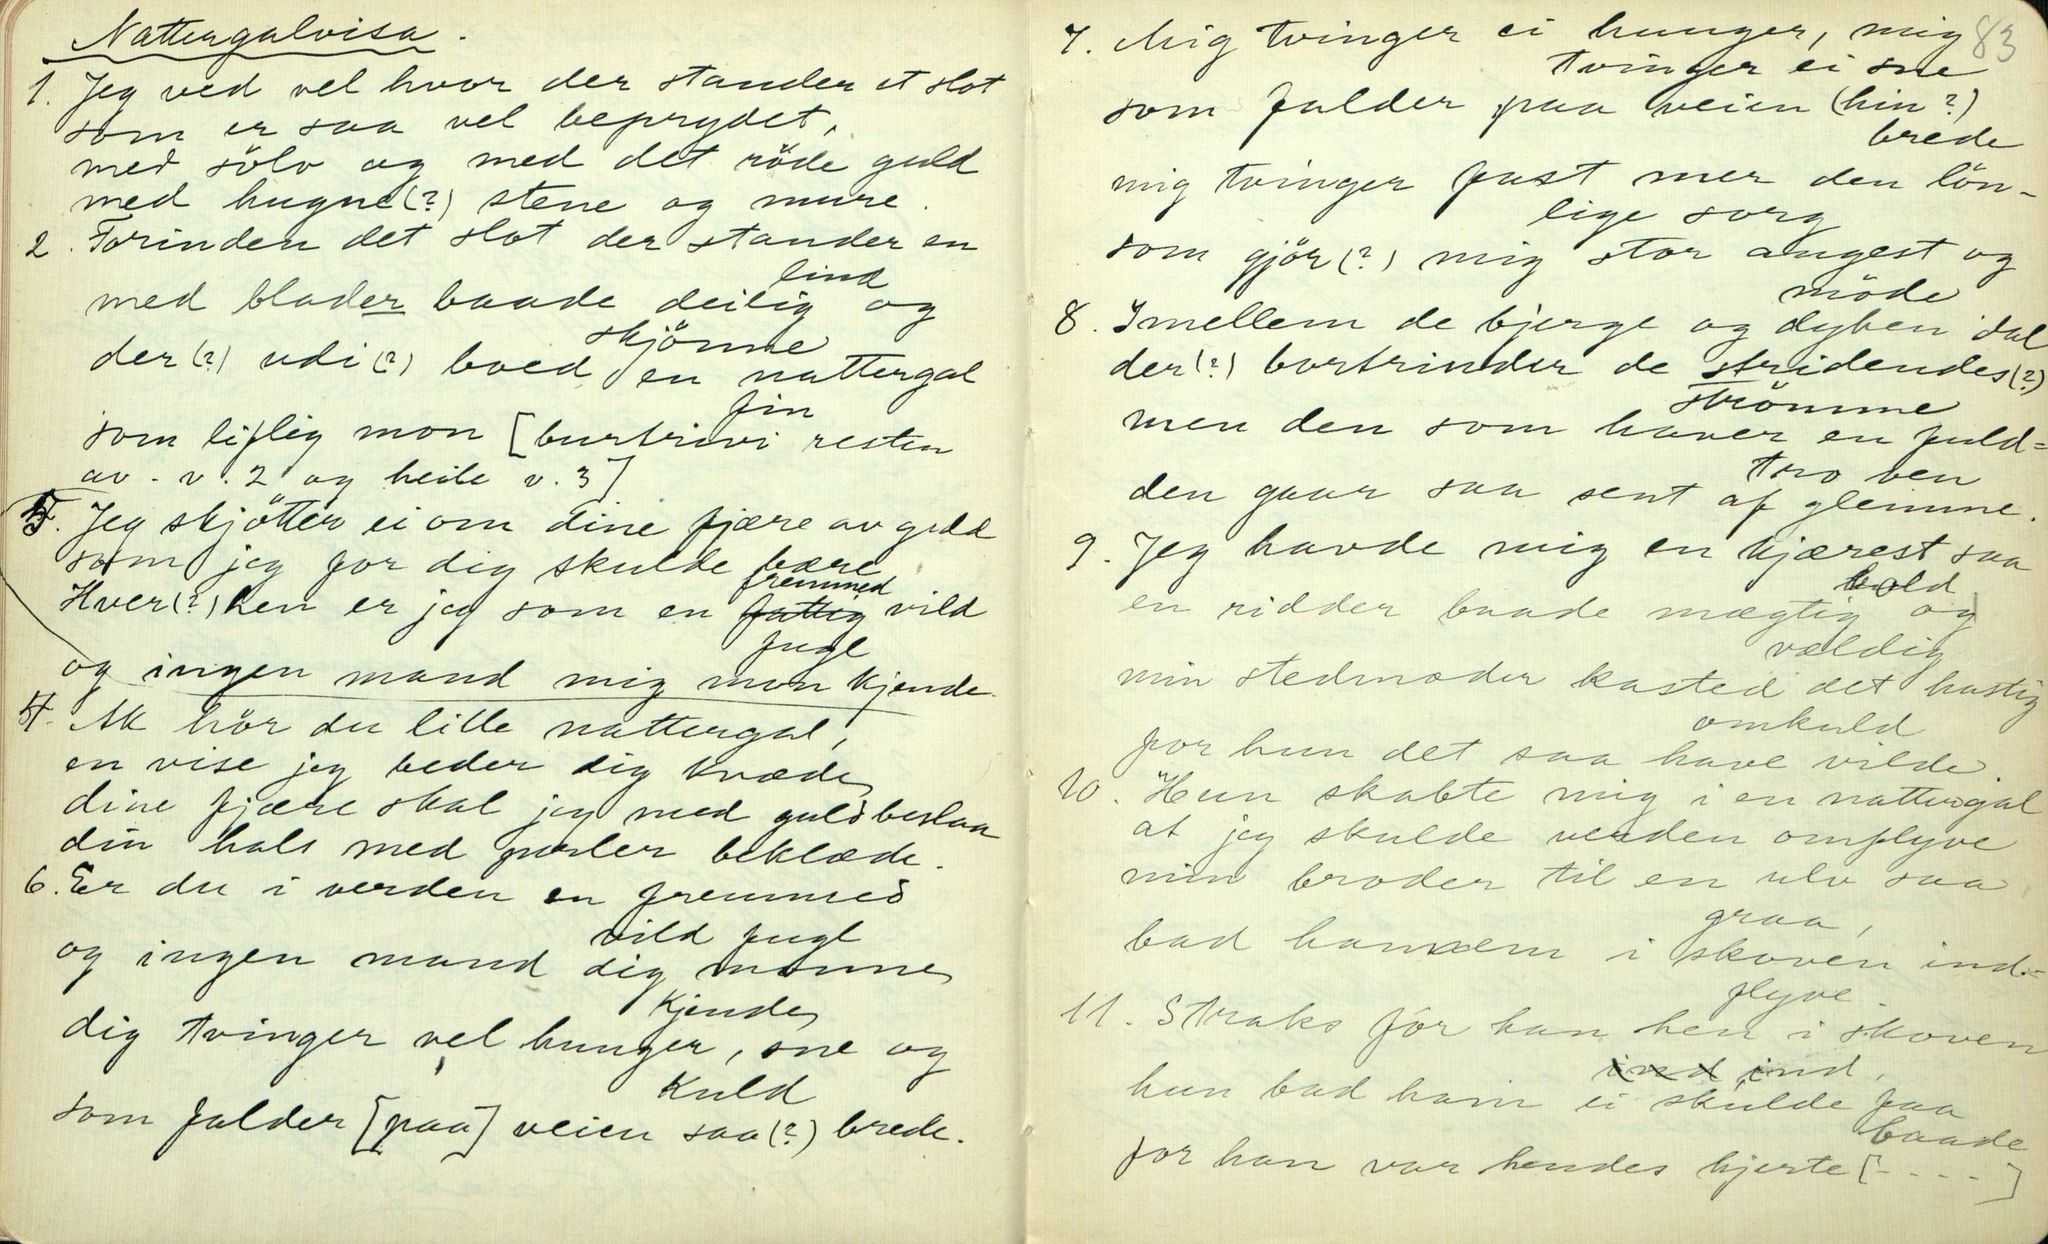 Nattergalvisa.
1. Jeg ved vel hvor der stander et slot
som er saa vel beprydet,
med sölv og med det röde guld
med hugne(?) stene og mure.
2. Forinden det slot der stander en
lind
med blader baade deilig og
skjönne
der(?) udi(?) boed en nattergal
fin
som liflig mon [burtrivi resten
av v. 2 og heile v. 3]
5. Jeg skjötter ei om dine fjære av guld
som jeg for dig skulde bære
fremmed
Hver(?) hen er jeg som en fattig vild
fugl
og ingen mand mig mon kjende.
4. Ak hör du lille nattergal,
en vise jeg beder dig kvæde
dine fjære skal jeg med guld beslaa
din hals med perler beklæde.
6. Er du i verden en fremmed
vild fugl
og ingen mand dig monne
kjende
dig tvinger vel hunger, sne og
kuld
som falder [paa] veien saa(?) brede.
83
7. Mig tvinger ei hunger, mig
tvinger ei sne
som falder paa veien (hin?)
brede
mig tvinger fast mer den lön-
lige sorg
som gjör(?) mig stor angest og
möde
8. Imellem de bjerge og dyben dal
der(?) bortrinder de stridendes(?)
strömme
men den som haver en fuld=
tro ven
den gaar saa sent af glemme.
9. Jeg havde mig en kjærest saa
bold
en ridder baade mægtig og
vældig
min stedmoder kasted det hastig
omkuld
for hun det saa have vilde.
10. Hun skabte mig i en nattergal
at jeg skulde verden omflyve
min broder til en ulv saa
graa,
bad ham i skoven ind=
flyve.
11. Straks för han hen i skoven
ind ind,
hun bad ham ei skulde faa
baade
for han var hendes hjerte [- - - -]